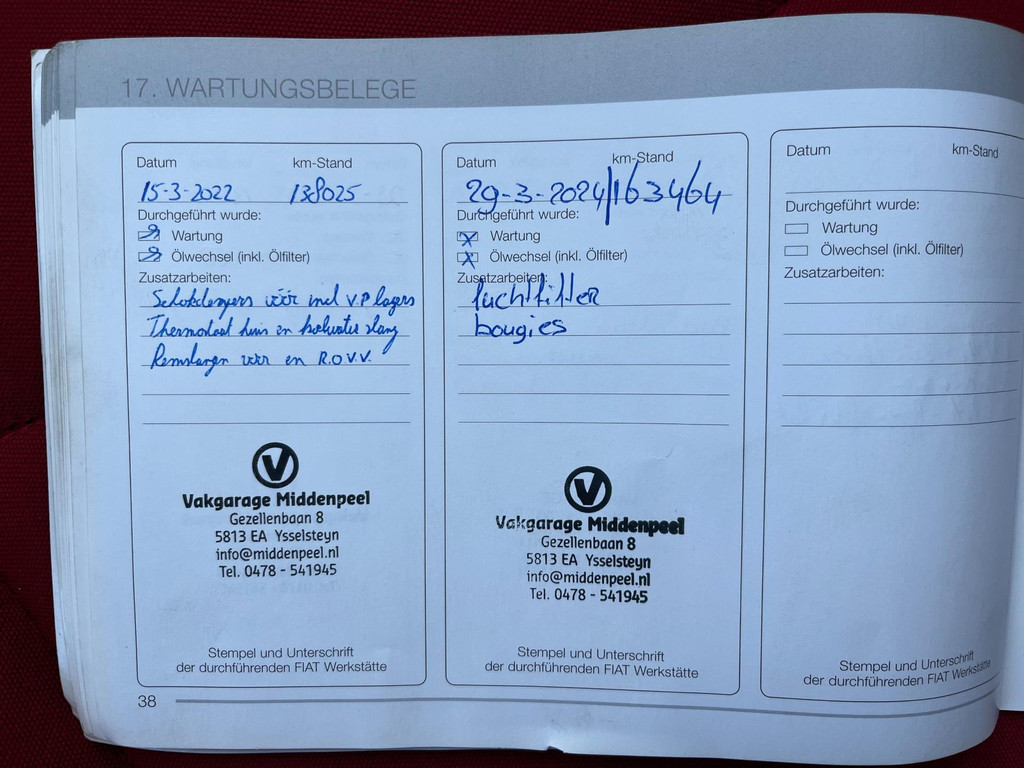 17. WARTUNGSBELEGE
Datum km-Stand
15-3-2022 138025
Durchgeführt wurde:
Wartung
Ölwechsel (inkl. Ölfilter)
Zusatzarbeiten:
Schokdempers vóór incl V.P lagers
Thermostaat huis en koelwater slang
Remslangen vóór en R.O.V.V.
Vakgarage Middenpeel
Gezellenbaan 8
5813 EA Ysselsteyn
info@middenpeel.nl
Tel. 0478 - 541945
Stempel und Unterschrift
der durchführenden FIAT Werkstätte
Datum km-Stand
29-3-2024/163464
Durchgeführt wurde:
Wartung
Ölwechsel (inkl. Ölfilter)
Zusatzarbeiten:
luchtfilter
bougies
Vakgarage Middenpeel
Gezellenbaan 8
5813 EA Ysselsteyn
info@middenpeel.nl
Tel. 0478 - 541945
Stempel und Unterschrift
der durchführenden FIAT Werkstätte
Datum km-Stand
Durchgeführt wurde:
Wartung
Ölwechsel (inkl. Ölfilter)
Zusatzarbeiten:
Stempel und Unterschrift
der durchführenden FIAT Werkstätte
38